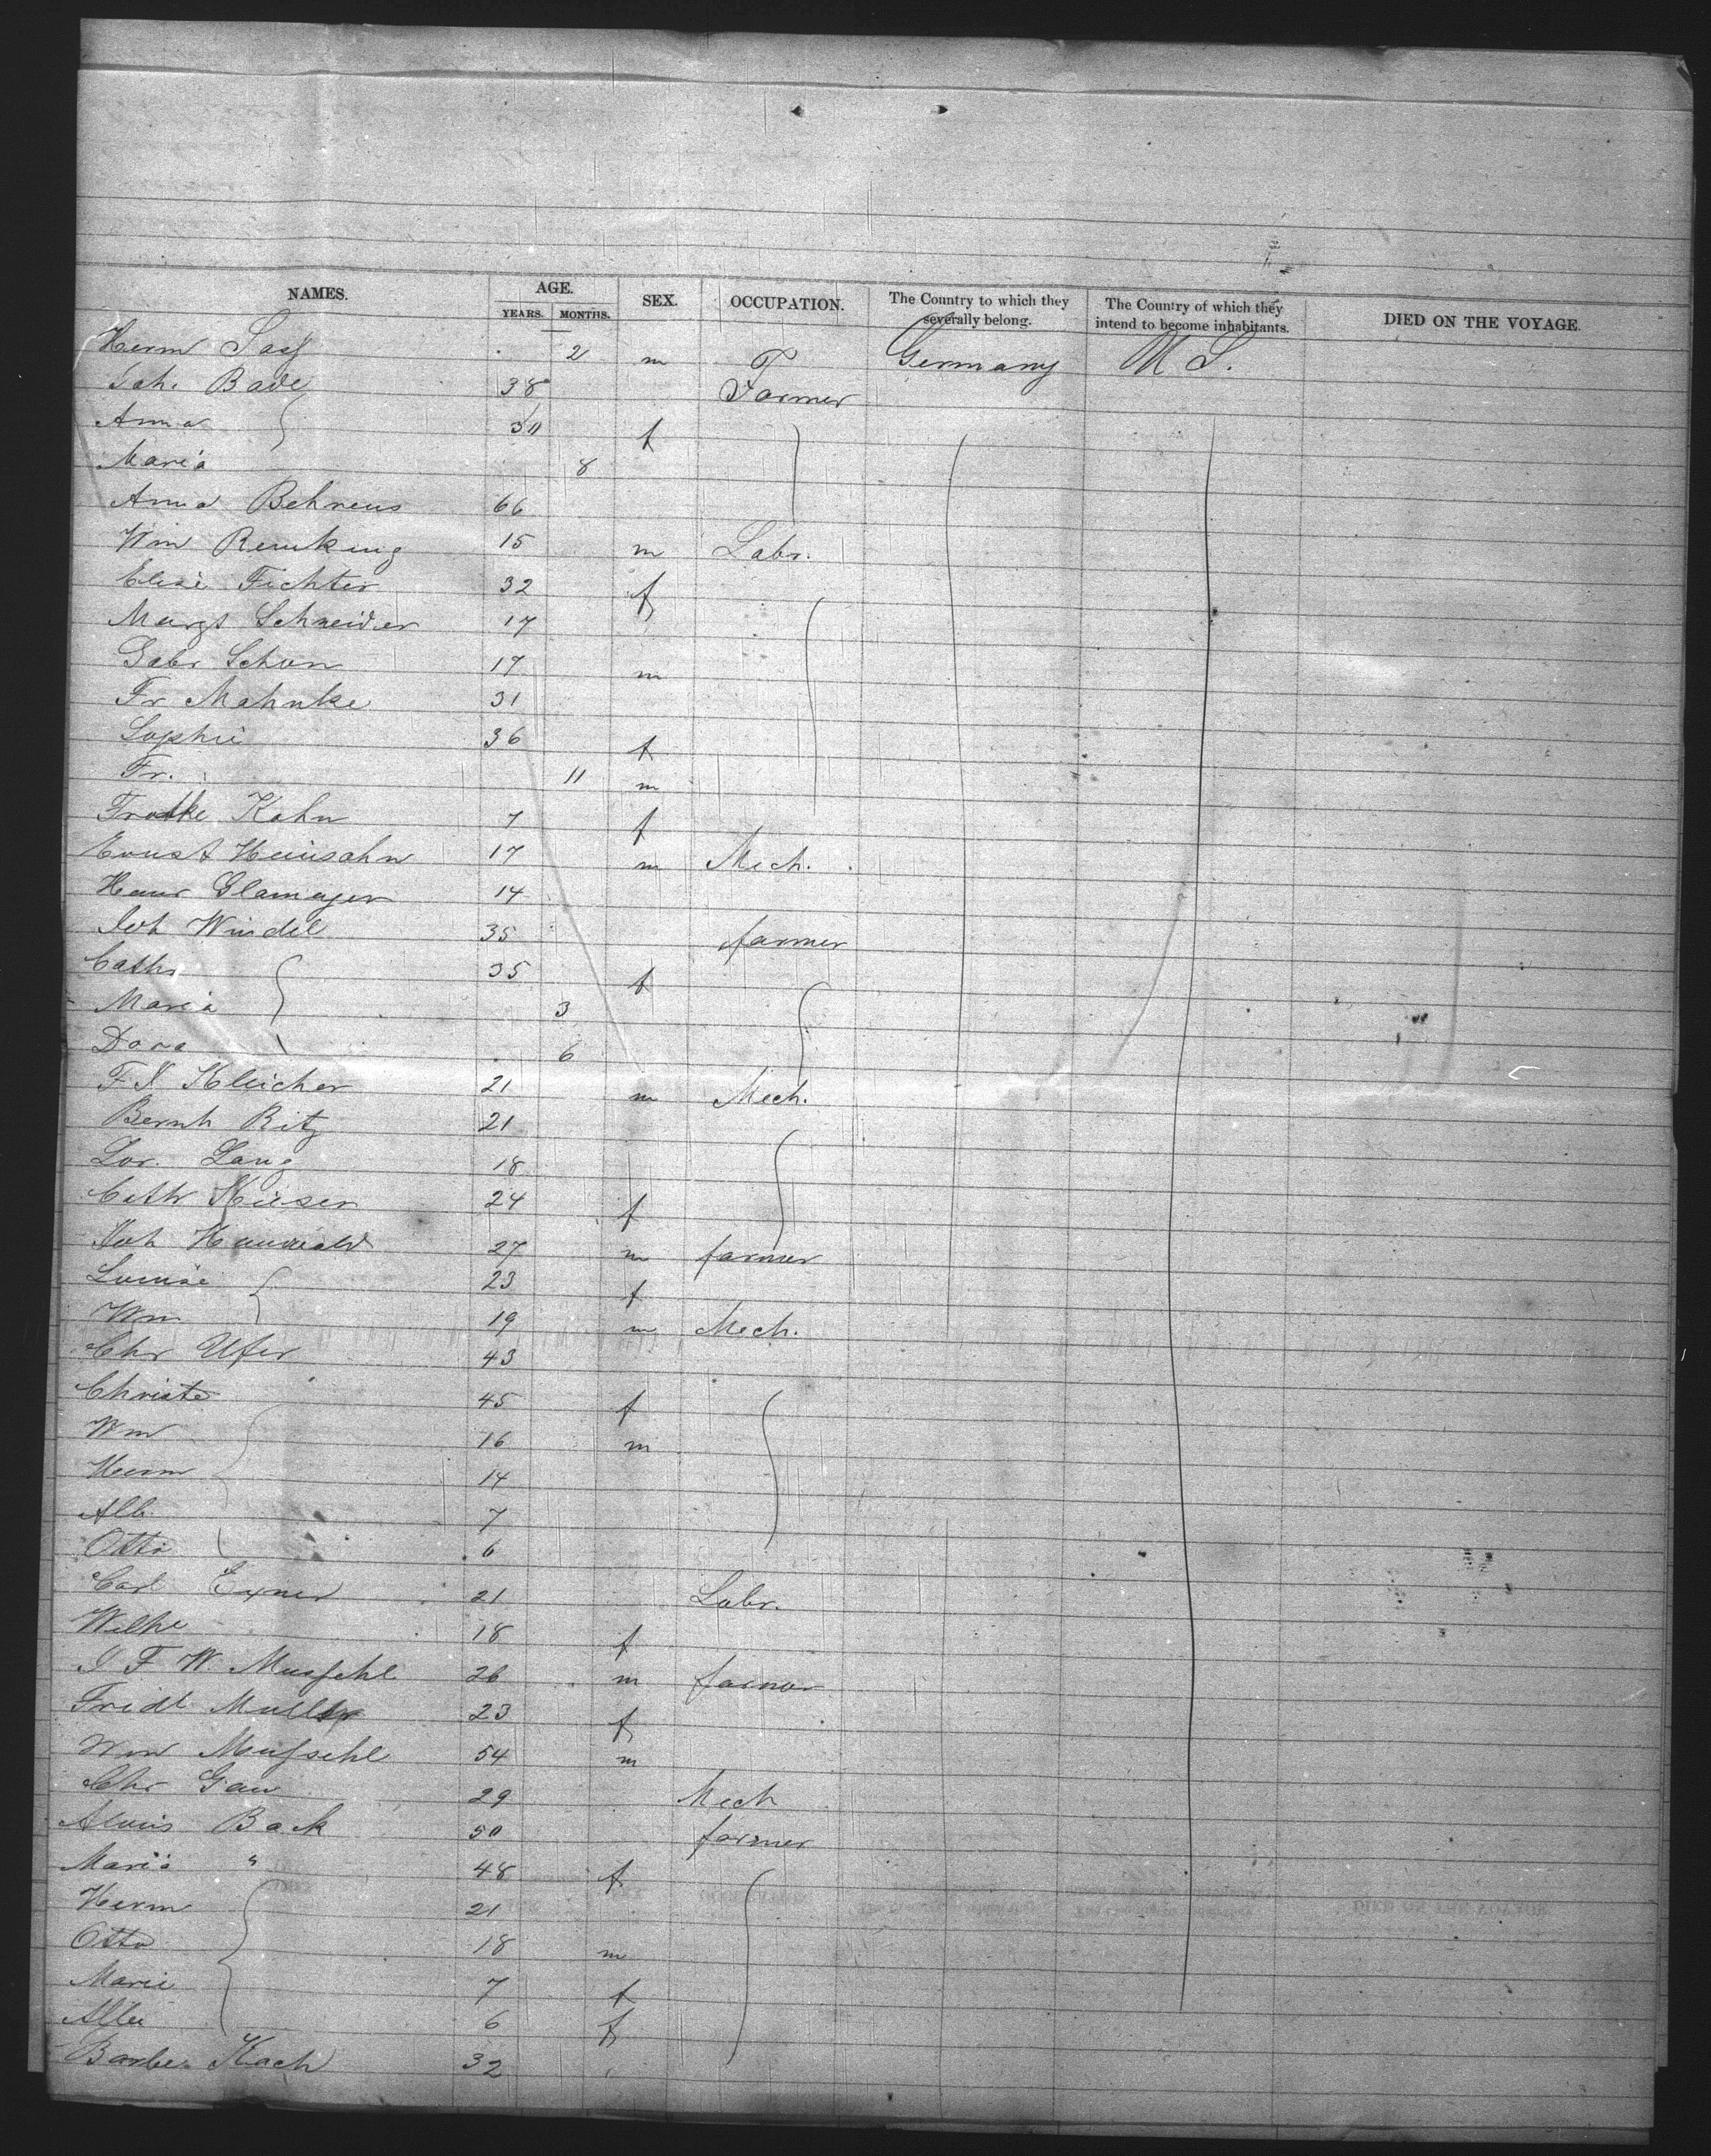 NAMES. AGE. YEARS. MONTHS. SEX. OCCUPATION. The Country to which they severally belong. The Country of which they intend to become inhabitants. DIED ON THE VOYAGE.
Herm Sass 2 m Germany U S.
Joh. Bade 38 Farmer
Anna 30 f
Maria 8
Anna Behrens 66
Wm Remking 15 m Labr.
Elise Fichter 32 f
Margt Schneider 17
Gabr Schon 17 m
Fr Mahnke 31
Sophie 36 f
Fr. 11 m
Kohn 7 f
Ernst Heinsohn 17 m Mech.
Heinr Glameyer 14
Joh Windel 35 farmer
Cathr 35 f
Maria 3
Dora 6
F X Kleicher 21 m Mech.
Bernh Ritz 21
Lor. Lang 18
Cathr Kieser 24 f
Joh Hauwald 27 m farmer
Louise 23 f
Wm 19 m Mech.
Chr Ufer 43
Christe 45 f
Wm 16 m
Herm 14
Alb. 7
Otto 6
Carl Exner 21 Labr.
Wilhe 18 f
J F W. Mussehl 26 m farmer
Fridl Muller 23 f
Wm Mussehl 54 m
Chr Gau 29 Mech
Alvis Back 50 farmer
Maria " 48 f
Herm 21
Otto 18 m
Marie 7 f
6 f
Barbe. Koch 32